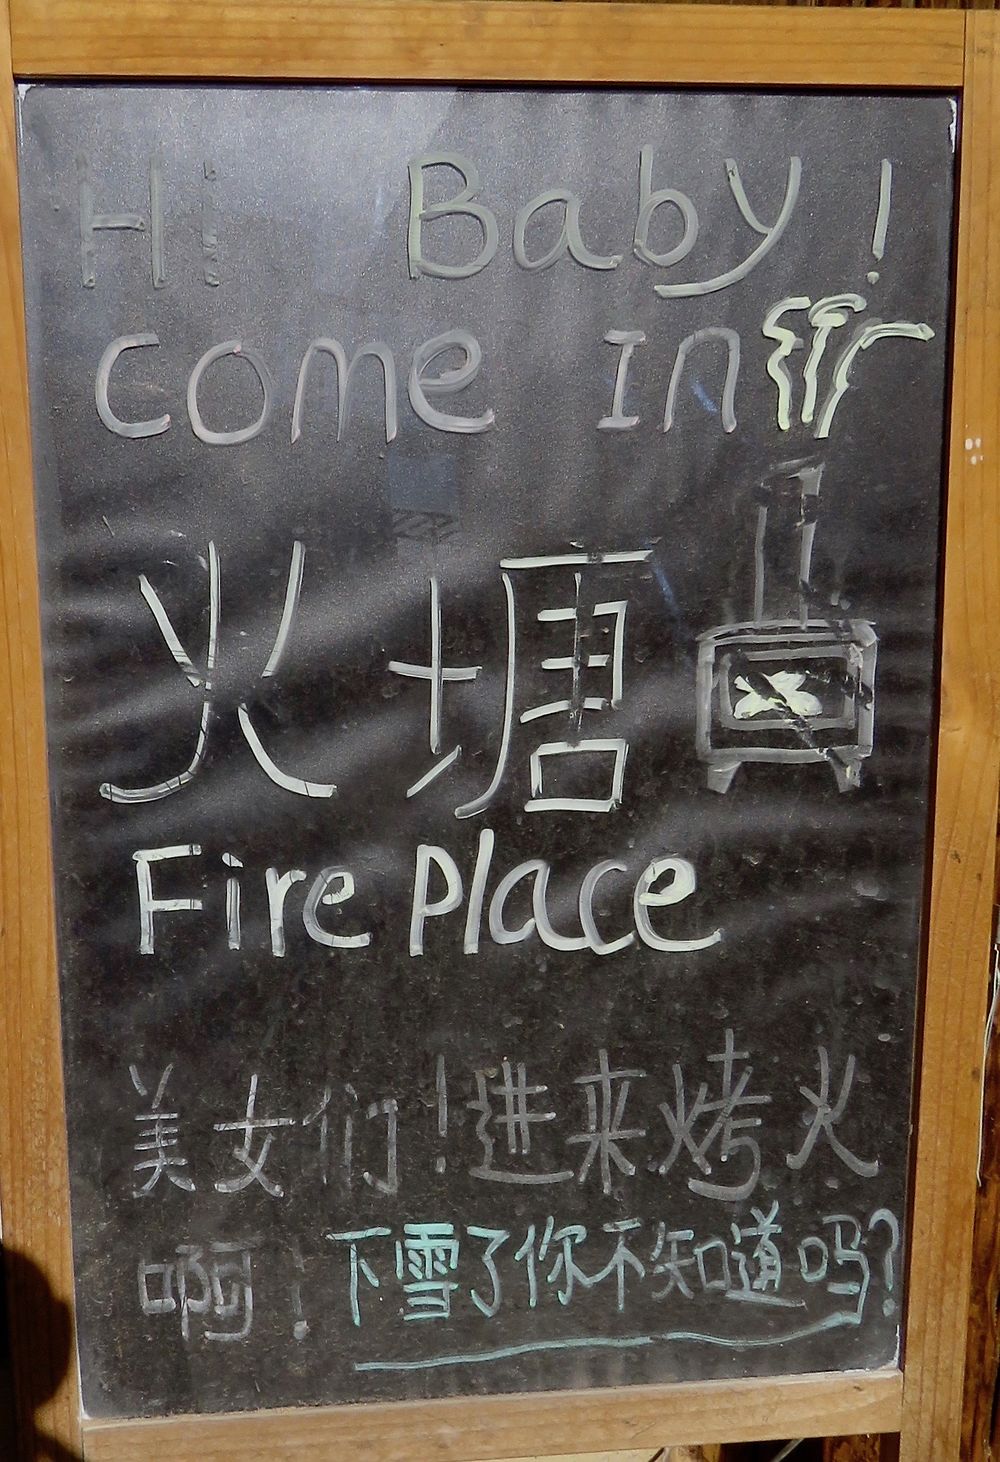 Hi Baby!
come In
火塘
Fire Place
美女们！进来烤火
啊！下雪了你不知道吗？